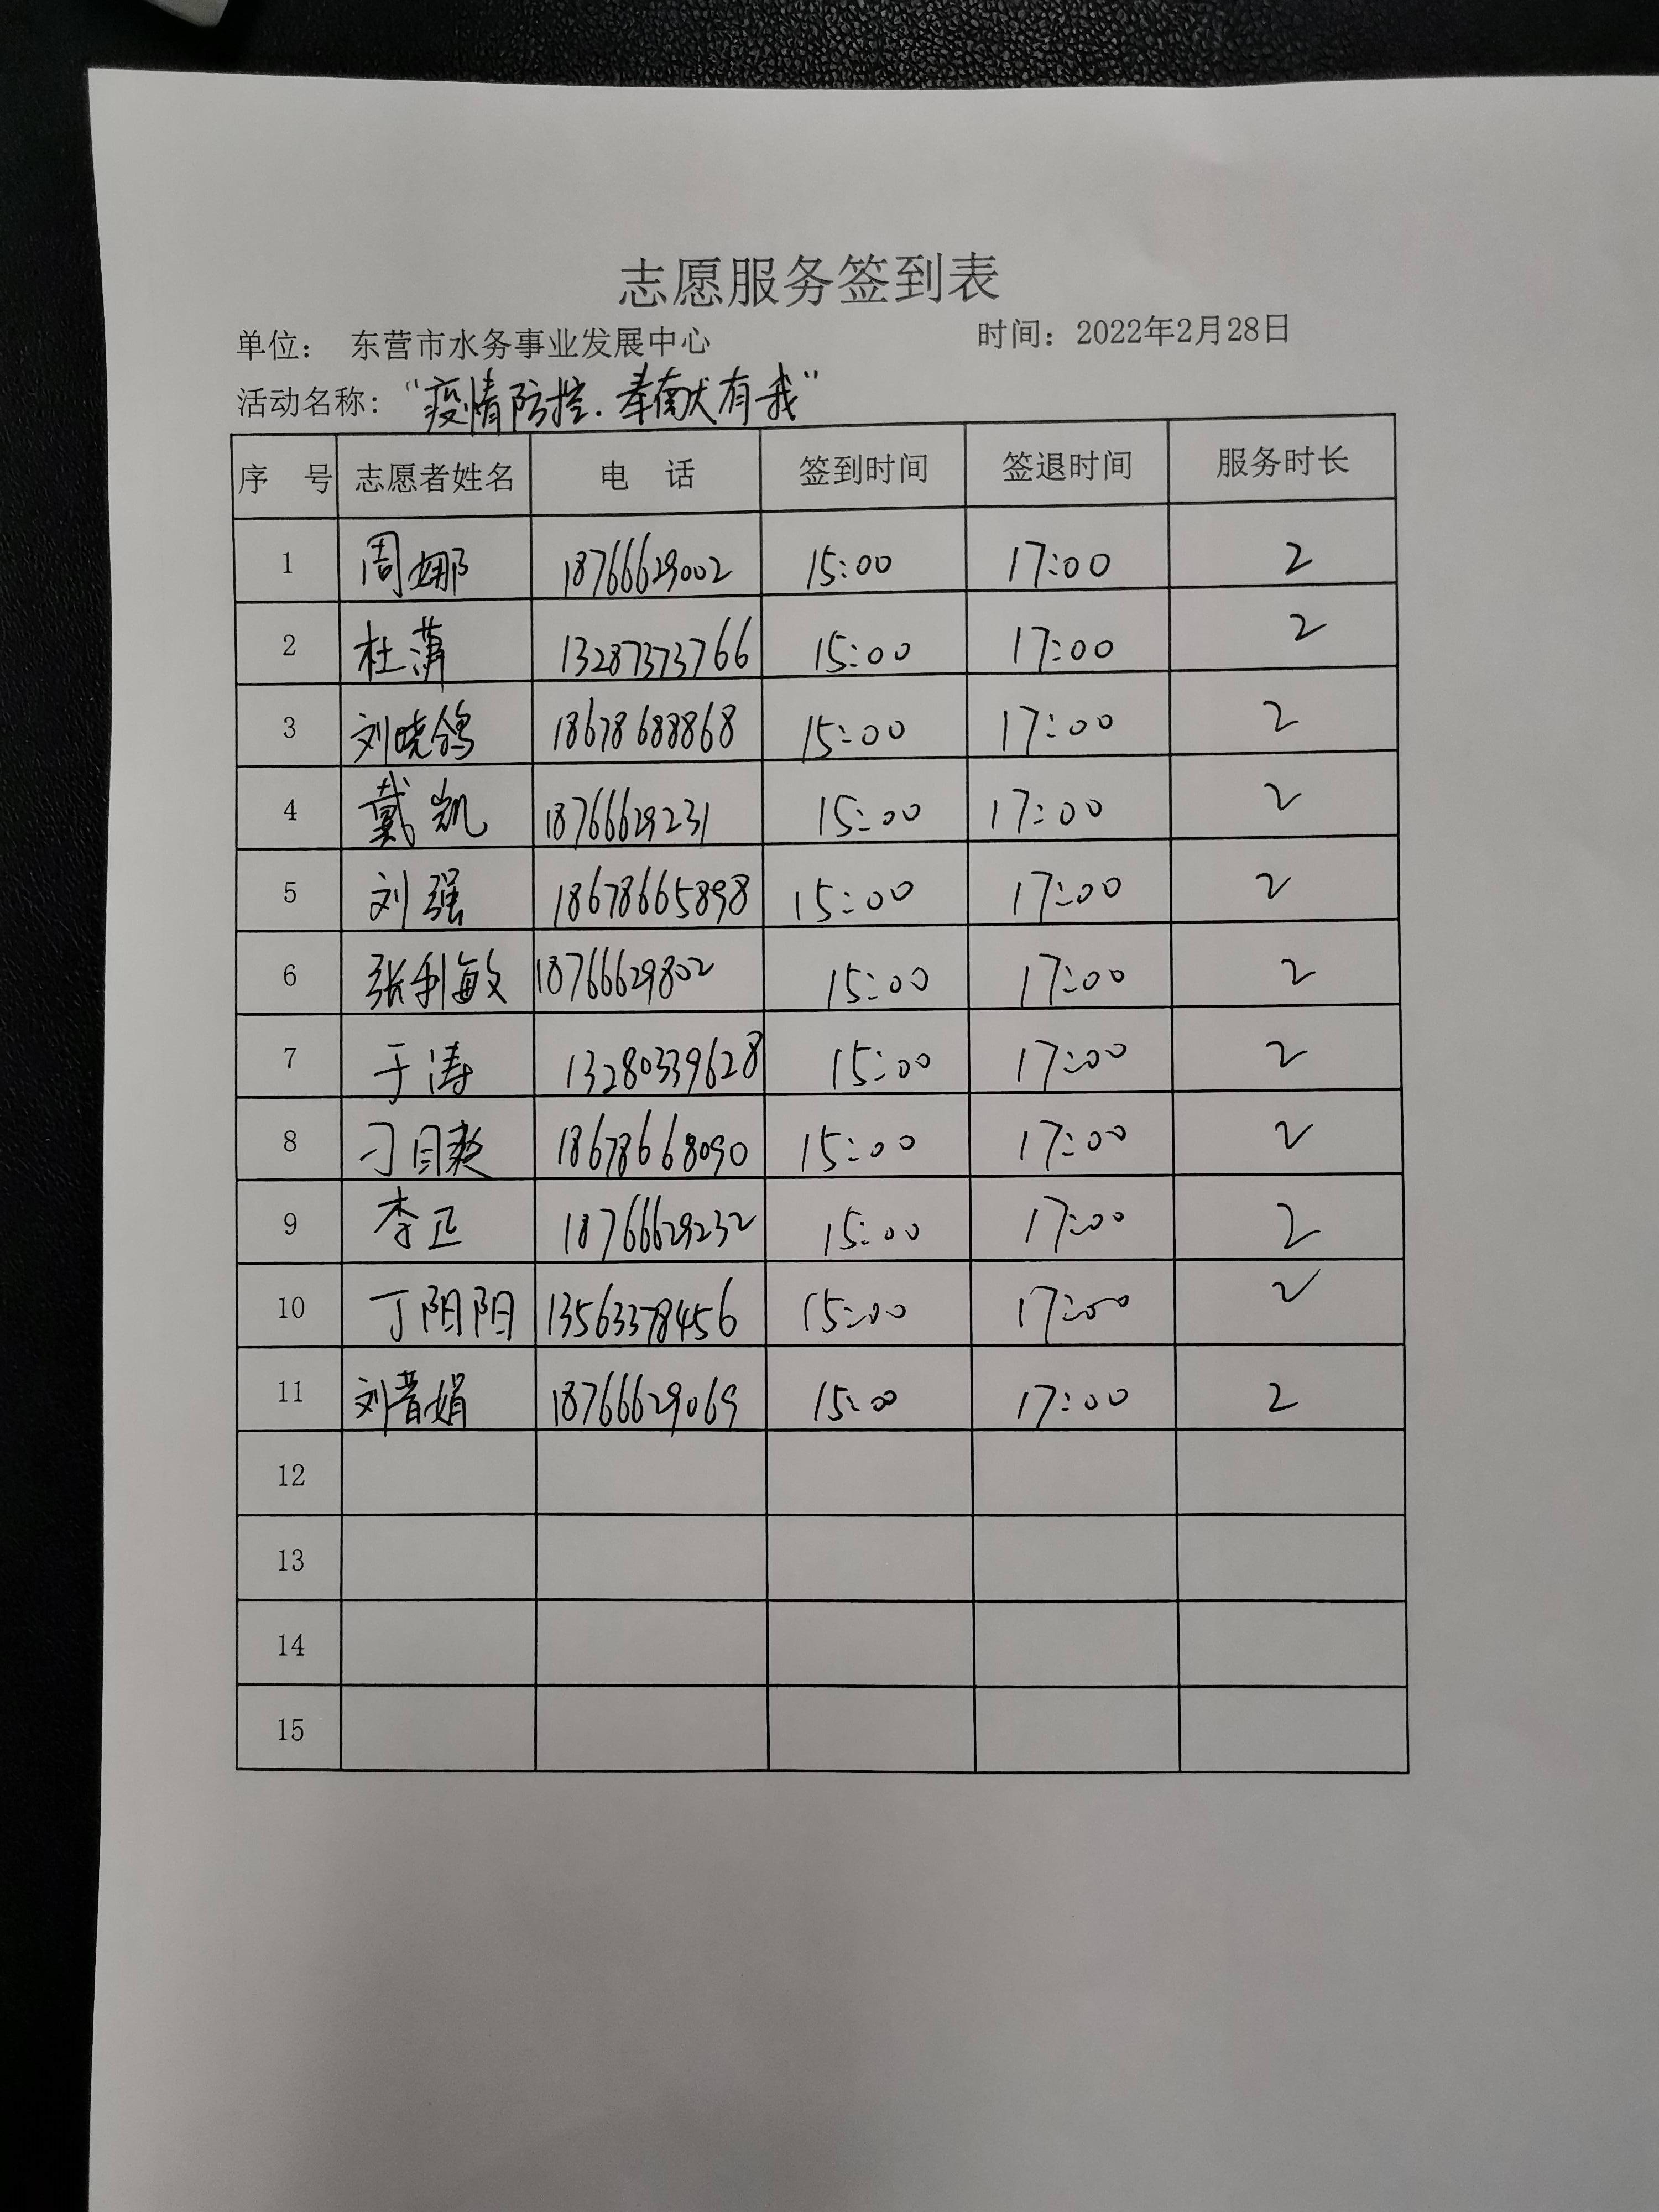 志愿服务签到表
单位： 东营市水务事业发展中心 时间：2022年2月28日
活动名称：“疫情防控.奉献有我”
序 号 志愿者姓名 电 话 签到时间 签退时间 服务时长
1 周娜 18766629002 15:00 17:00 2
2 杜潇 13287373766 15:00 17:00 2
3 刘晓鸽 18678688868 15:00 17:00 2
4 戴凯 18766629231 15:00 17:00 2
5 刘强 18678665898 15:00 17:00 2
6 张利敏 18766629802 15:00 17:00 2
7 于涛 13280339628 15:00 17:00 2
8 刁目爽 18678668090 15:00 17:00 2
9 李正 18766629232 15:00 17:00 2
10 丁阳阳 13563378456 15:00 17:00 2
11 刘晋娟 18766629069 15:00 17:00 2
12
13
14
15